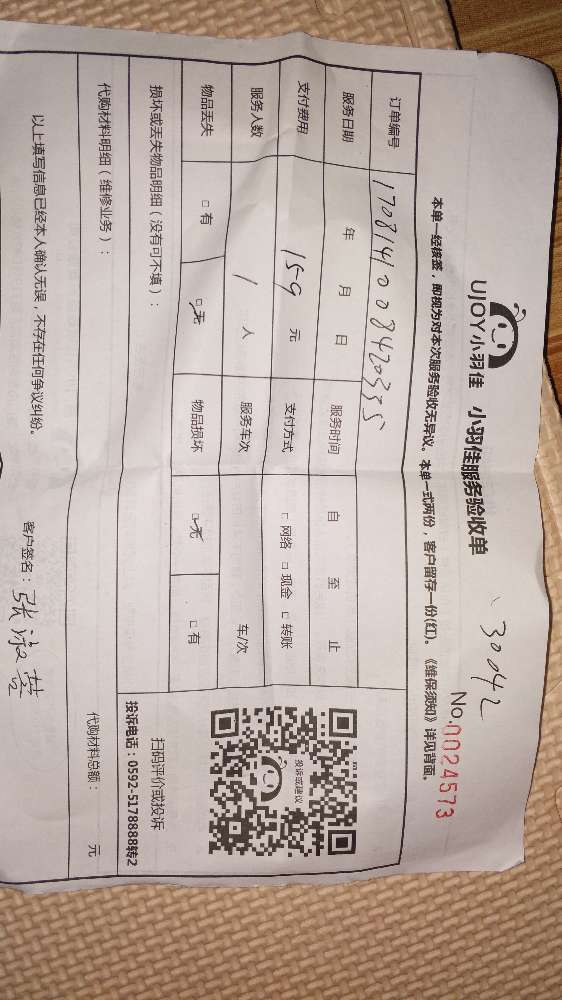 UJOY小羽佳 小羽佳服务验收单
30042
No.0024573
本单一经核签，即视为对本次服务验收无异议。本单一式两份，客户留存一份(红)。《维保须知》详见背面。
订单编号 170814100842035
服务日期 年 月 日 服务时间 自 至 止
支付费用 159 元 支付方式 □ 网络 □ 现金 □ 转账
服务人数 1 人 服务车次 车/次
物品丢失 □ 有 □ 无 物品损坏 □ 无 □ 有
投诉或建议
扫码评价或投诉
投诉电话：0592-5178888转2
损坏或丢失物品明细（没有可不填）：
代购材料明细（维修业务）： 代购材料总额： 元
以上填写信息已经本人确认无误，不存在任何争议纠纷。
客户签名：张